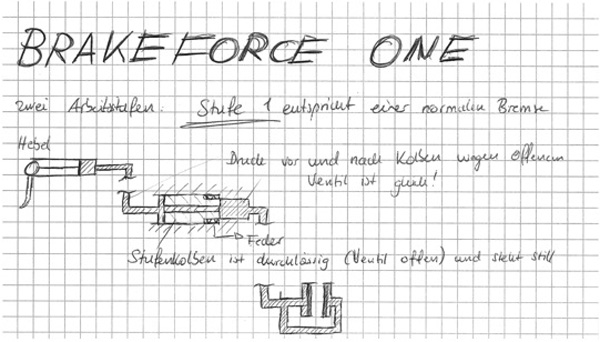 BRAKEFORCE ONE
zwei Arbeitsstufen: Stufe 1 entspricht einer normalen Bremse
Hebel
Druck vor und nach Kolben wegen offenem
Ventil ist gleich!
Feder
Stufenkolben ist durchlässig (Ventil offen) und steht still